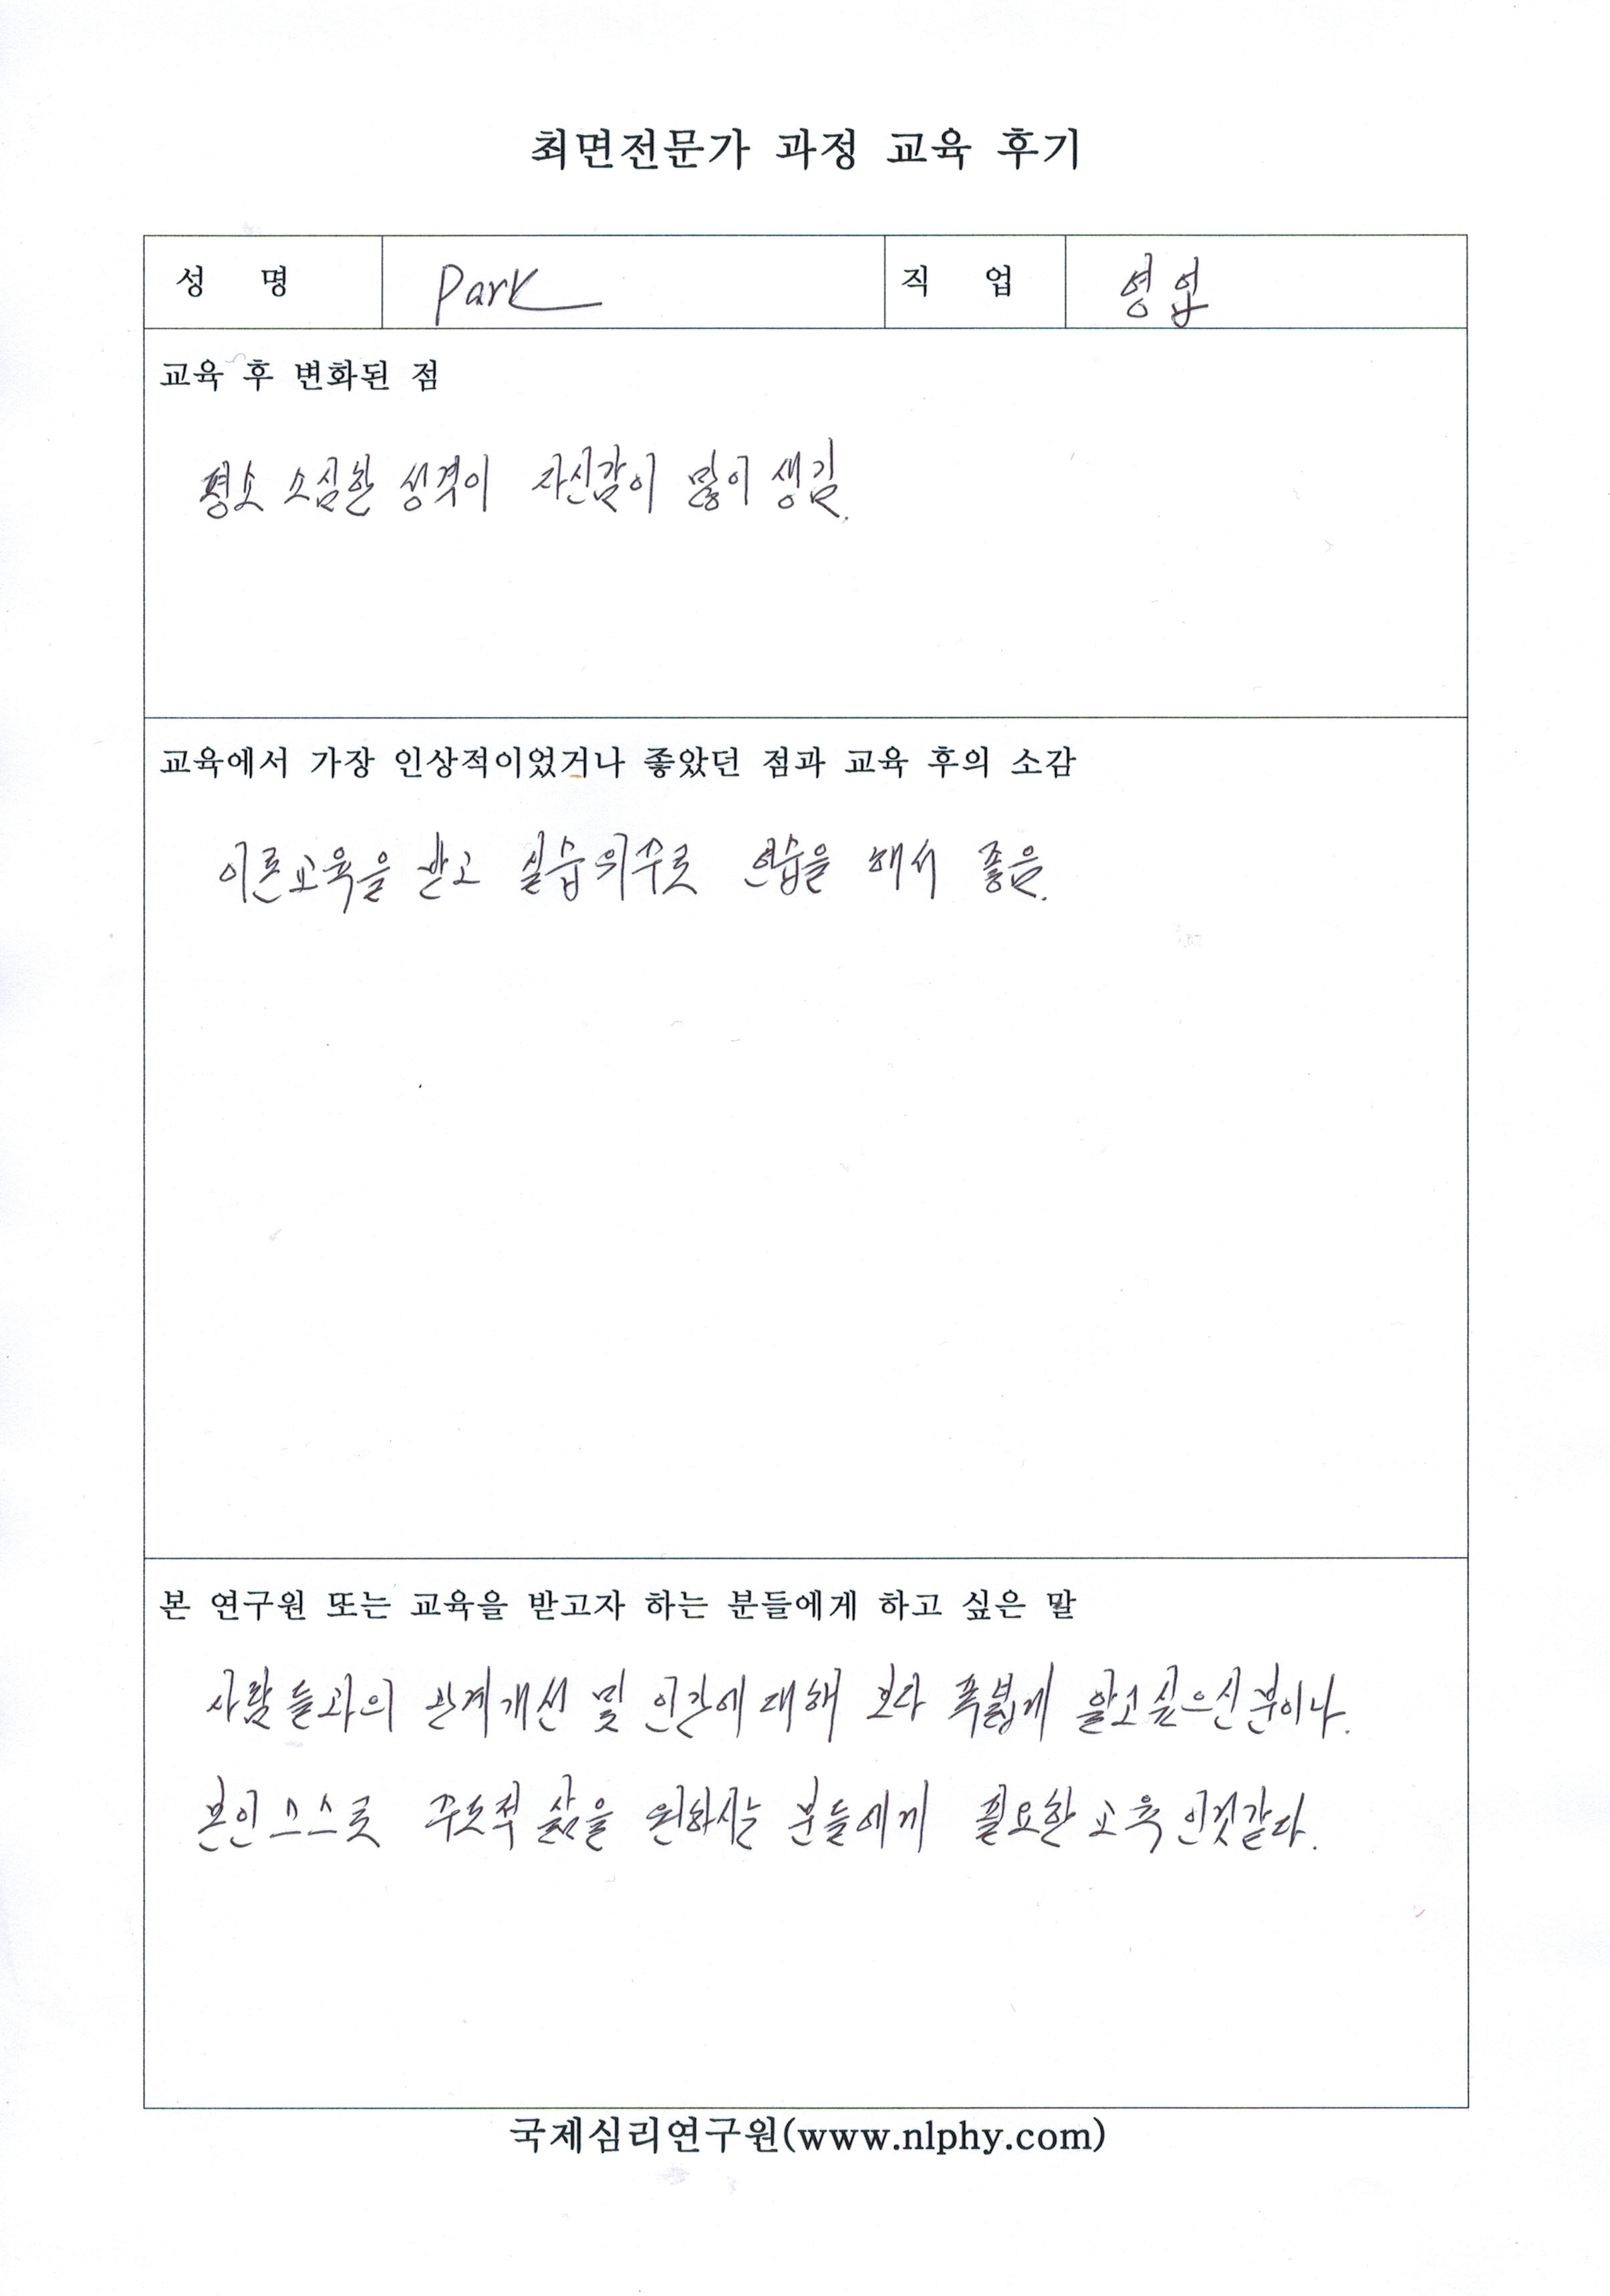 최면전문가 과정 교육 후기
성 명 Park 직 업 영업
교육 후 변화된 점
평소 소심한 성격이 자신감이 많이 생김.
교육에서 가장 인상적이었거나 좋았던 점과 교육 후의 소감
이론교육을 받고 실습위주로 연습을 해서 좋음.
본 연구원 또는 교육을 받고자 하는 분들에게 하고 싶은 말
사람들과의 관계개선 및 인간에 대해 보다 폭넓게 알고싶으신분이나.
본인스스로 주도적 삶을 원하시는 분들에게 필요한 교육인것같다.
국제심리연구원(www.nlphy.com)